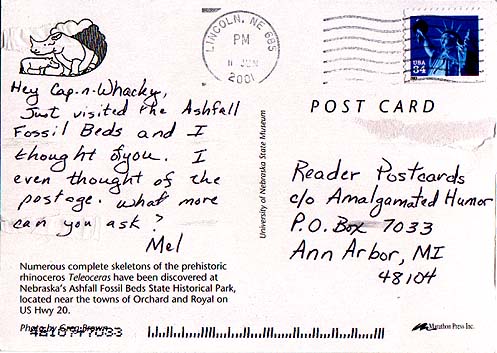 LINCOLN, NE 685
PM
11 JUN
2001
USA
34
Hey Cap-n-Whacky,
Just visited the Ashfall
Fossil Beds and I
thought of you. I
even thought of the
postage. What more
can you ask?
Mel
Numerous complete skeletons of the prehistoric
rhinoceros Teleoceras have been discovered at
Nebraska's Ashfall Fossil Beds State Historical Park,
located near the towns of Orchard and Royal on
US Hwy 20.
Photo by Greg Brown
48107+7033
University of Nebraska State Museum
POST CARD
Reader Postcards
c/o Amalgamated Humor
P.O. Box 7033
Ann Arbor, MI
48104
Marathon Press Inc.